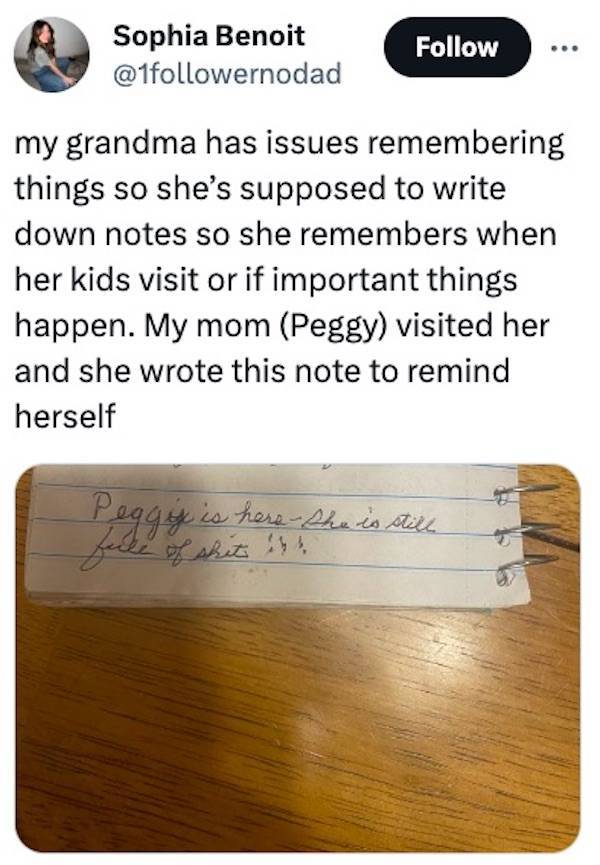 Sophia Benoit
Follow
@1followernodad
my grandma has issues remembering
things so she's supposed to write
down notes so she remembers when
her kids visit or if important things
happen. My mom (Peggy) visited her
and she wrote this note to remind
herself
Peggy is here - She is still
full of shit !!!